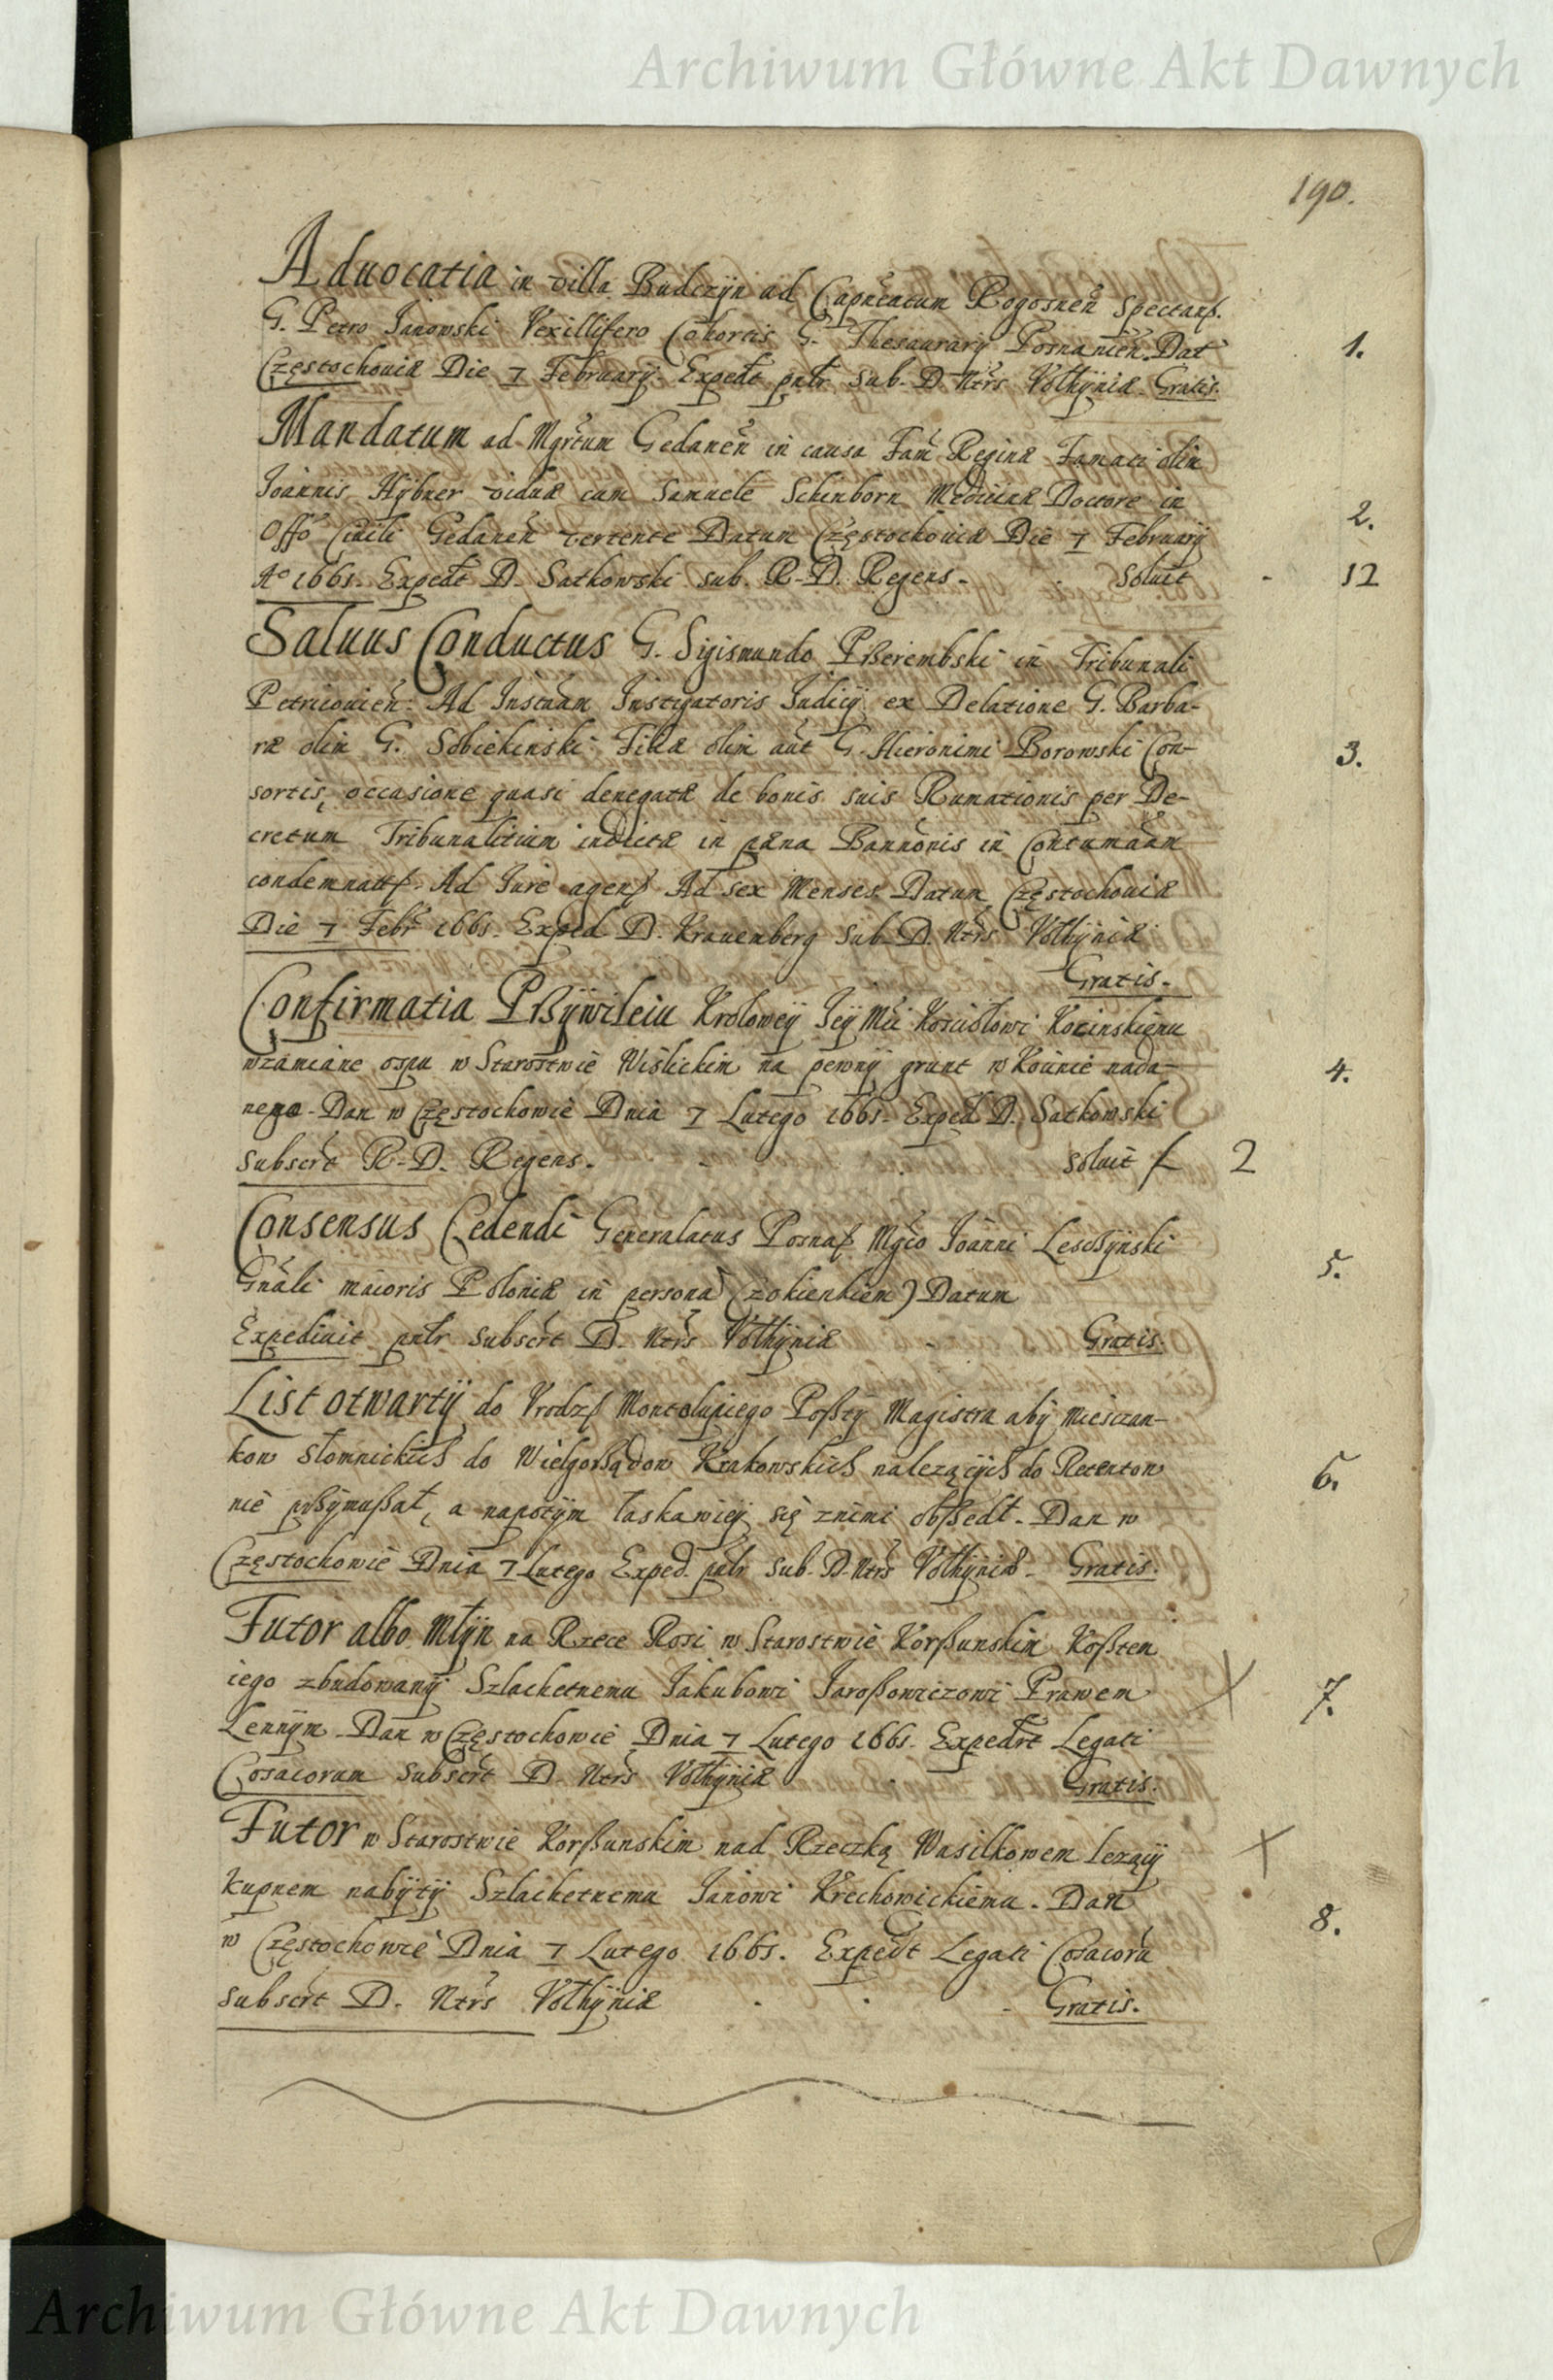 Archiwum Główne Akt Dawnych
190.
Aduocatia in villa Budczÿn ad Capńeatum Rogosneń Spectans.
G. Petro Janowski Vexillifero Cohortis G. Thesaurarÿ Posnanień. Dat
Częstochoviæ Die 7 Februarÿ Expedt pntr Sub. D. Ntrs Vołhÿniæ. Gratis.
1.
Mandatum ad Mgrtum Gedaneń in causa Fam Reginæ Famati olim
Joannis Hÿbner viduæ cum Samuele Schinborn Medicinæ Doctore in
Offo Civili Gedaneń vertente Datum Częstochoviæ Die 7 Februarÿ
2.
Ao 1661. Expedt D. Satkowski sub. R. D. Regens. Soluit - 12
Saluus Conductus G. Sigismundo Pßerembski in Tribunali
Petricouień. Ad Instnam Instigatoris Judicÿ ex Delatione G. Barba-
ræ olim G. Sobiekinski Filiæ olim aut G. Hieronimi Borowski Con-
3.
sortis, occasione quasi denegatæ de bonis suis Rumationis per De-
cretum Tribunalitium indictæ in pæna Bannonis in Contumaam
condemnatt. Ad Jure agens Ad sex Menses. Datum Częstochoviæ
Die 7 Febr 1661. Exped D. Krauenberg Sub. D. Ntrs Vołhÿniæ
Gratis.
Confirmatia Pßÿwileiu Kroloweÿ Jeÿ Mci Kosciołowi Kozinskiemu
wzamiane ospu w Starostwie Wislickim na pewnÿ grunt w Kounie nada-
4.
nego. Dan w Częstochowie Dnia 7 Lutego 1661. Exped D. Satkowski
Subscrt R. D. Regens. soluit f 2
Consensus Cedendi Generalatus Posnas Mgco Joanni Lescßÿnski
Gnali maioris Poloniæ in persona (z okienkiem) Datum
5.
Expediuit pntr Subscrt D. Ntrs Vołhÿniæ Gratis.
List otwartÿ do Vrodz Montolupiego Poßtÿ Magistra abÿ Miesczan-
kow Słomnickich do Wielgorßądow Krakowskich nalezącÿch do Retentow
6.
nie pßÿmußał, a napotÿm łaskawieÿ się znimi obßedł. Dan w
Częstochowie Dnia 7 Lutego Exped. pntr Sub. D. Ntrs Vołhÿniæ. Gratis.
Futor albo Młÿn na Rzece Rosi w Starostwie Korßunskim Koßtem
iego zbudowanÿ Szlachetnemu Jakubowi Jaroßowiczowi Prawem
7.
Lennÿm. Dan w Częstochowie Dnia 7 Lutego 1661. Expedrt Legati
Cosacorum Subscrt D. Ntrs Vołhÿniæ Gratis.
Futor w Starostwie Korßunskim nad Rzeczką Wasilkowem lezącÿ
kupnem nabÿtÿ Szlachetnemu Janowi Krechowickiemu. Dan
8.
w Częstochowie Dnia 7 Lutego 1661. Expedt Legati Cosacoru
Subscrt D. Ntrs Vołhÿniæ Gratis.
Archiwum Główne Akt Dawnych